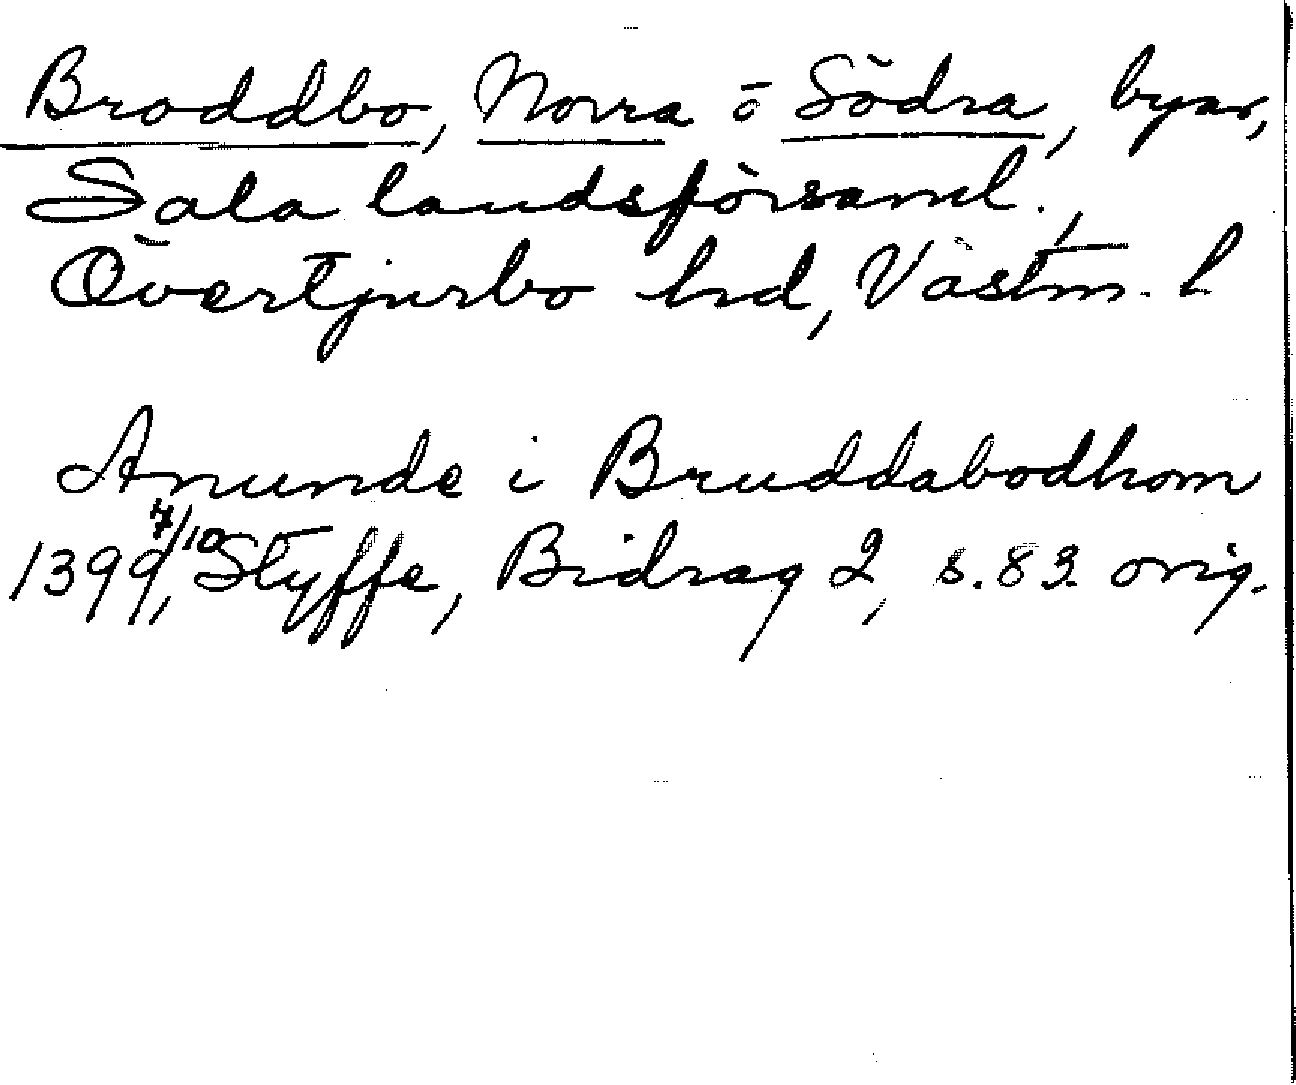 Broddbo, Norra o Södra, byar,
Sala landsförsaml.,
Övertjurbo hrd, Västm. l
Anunde i Bruddabodhom
1399 7/10, Styffe, Bidrag 2, s. 83. orig.